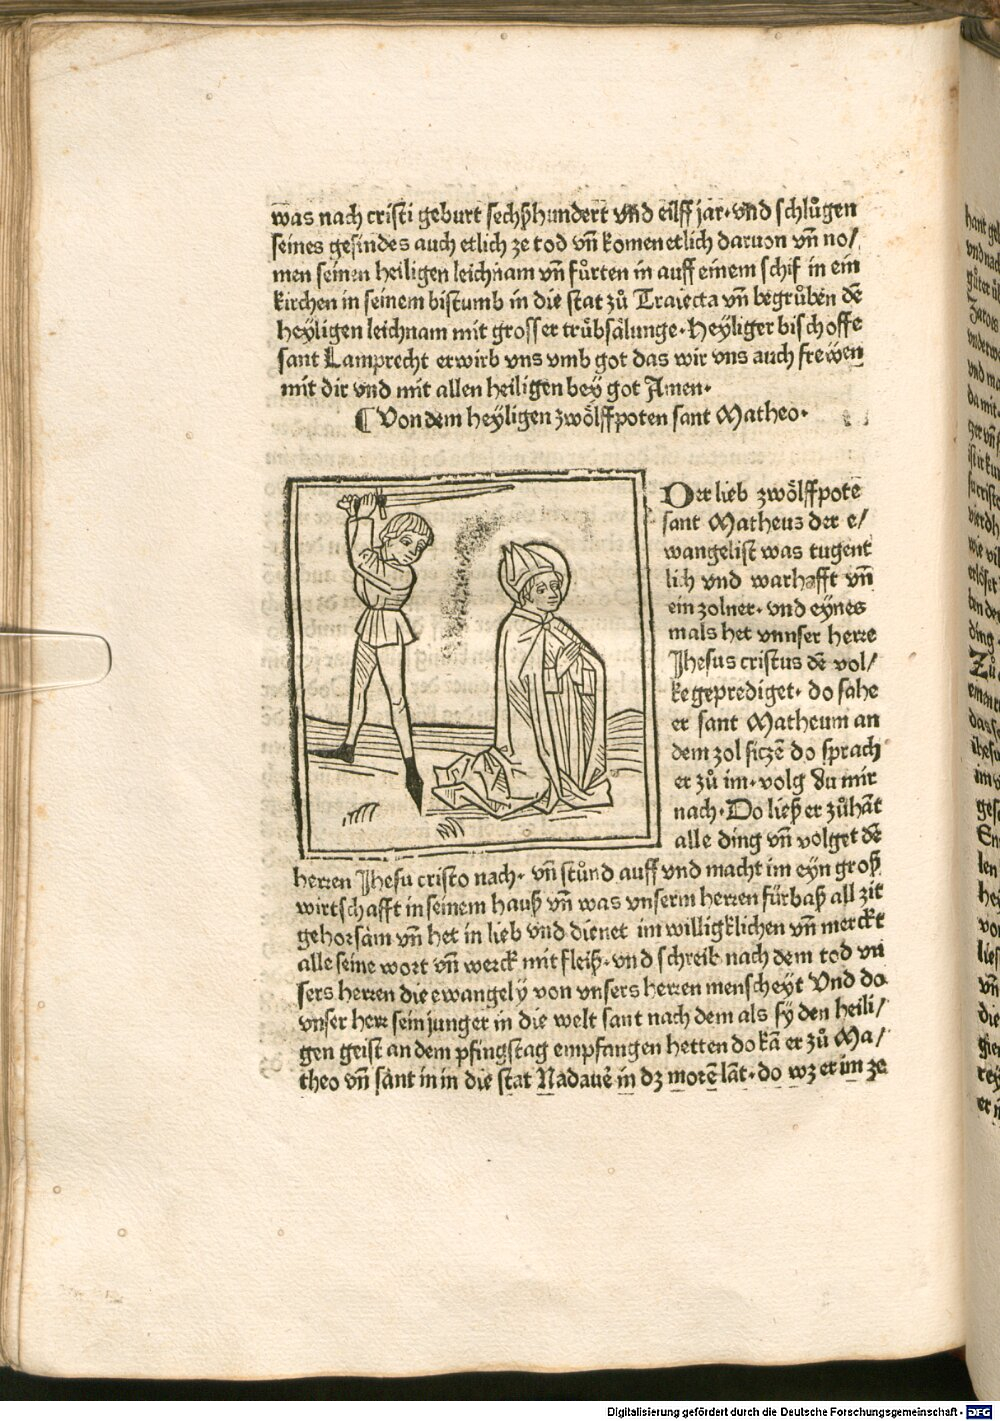 was nach cristi geburt sechßhundert vnd eilff jar· vnd schlůgen
seines gesindes auch etlich ze tod vñ komen etlich daruon vñ no/
men seinen heiligen leichnam vñ fůrten in auff einem schif in ein
kirchen in seinem bistumb in die stat zů Traiecta vñ begrůben dē
heÿligen leichnam mit grosser trůbsålunge· Heÿliger bischoffe
sant Lamprecht erwirb vns vmb got das wir vns auch frewen
mit dir vnd mit allen heiligen beÿ got Amen·
¶ Von dem heÿligen zwölffpoten sant Matheo·
Der lieb zwölffpote
sant Matheus der e/
wangelist was tugent
lich vnd warhafft vñ
ein zolner· vnd eÿnes
mals het vnnser herre
Jhesus cristus dē vol/
ke geprediget· do sahe
er sant Matheum an
dem zol siczē do sprach
er zů im· volg du mir
nach· Do ließ er zůhāt
alle ding vñ volget dē
herren Jhesu cristo nach· vñ stůnd auff vnd macht im eÿn groß
wirtschafft in seinem hauß vñ was vnserm herren fürbaß all zit
gehorsåm vñ het in lieb vnd dienet im willigklichen vñ merckt
alle seine wort vñ werck mit fleiß· vnd schreib nach dem tod vn
sers herren die ewangelÿ von vnsers herren menscheyt Vnd do
vnser herr sein junger in die welt sant nach dem als sÿ den heili/
gen geist an dem pfingstag empfangen hetten do kā er zů Ma/
theo vñ sånt in in die stat Nadauē in dz morē lāt· do wz er im ze
Digitalisierung gefördert durch die Deutsche Forschungsgemeinschaft - DFG